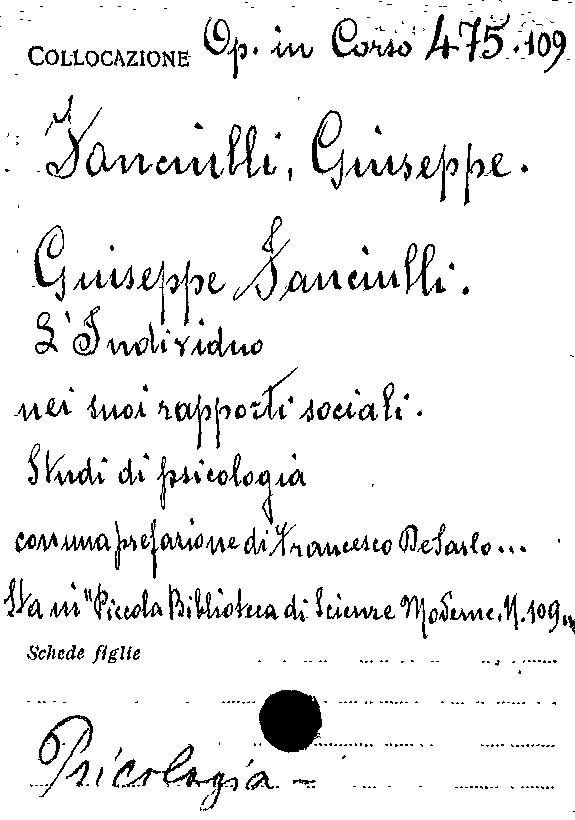 COLLOCAZIONE Op. in Corso 475.109
Fanciulli, Giuseppe.
Giuseppe Fanciulli.
L'Individuo
nei suoi rapporti sociali.
Studi di psicologia
con una prefazione di Francesco De Sarlo...
Sta in "Piccola Biblioteca di Scienze Moderne. N. 109„
Schede figlie
Psicologia -